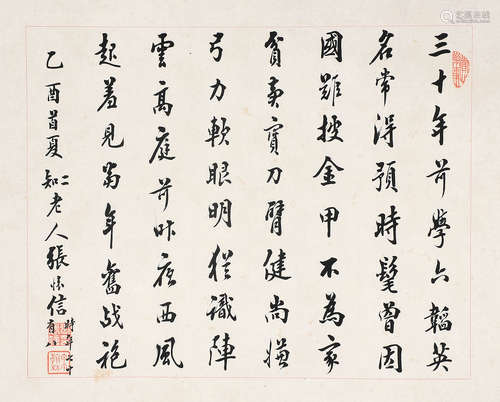 三十年前學六韜英
名常得預時髦曾因
國難披金甲不為家
貧賣寶刀臂健尚嫌
弓力軟眼明猶識陣
雲高庭前昨夜西風
起羞見當年舊战袍
乙酉首夏知二老人張怀信
時年七十
有